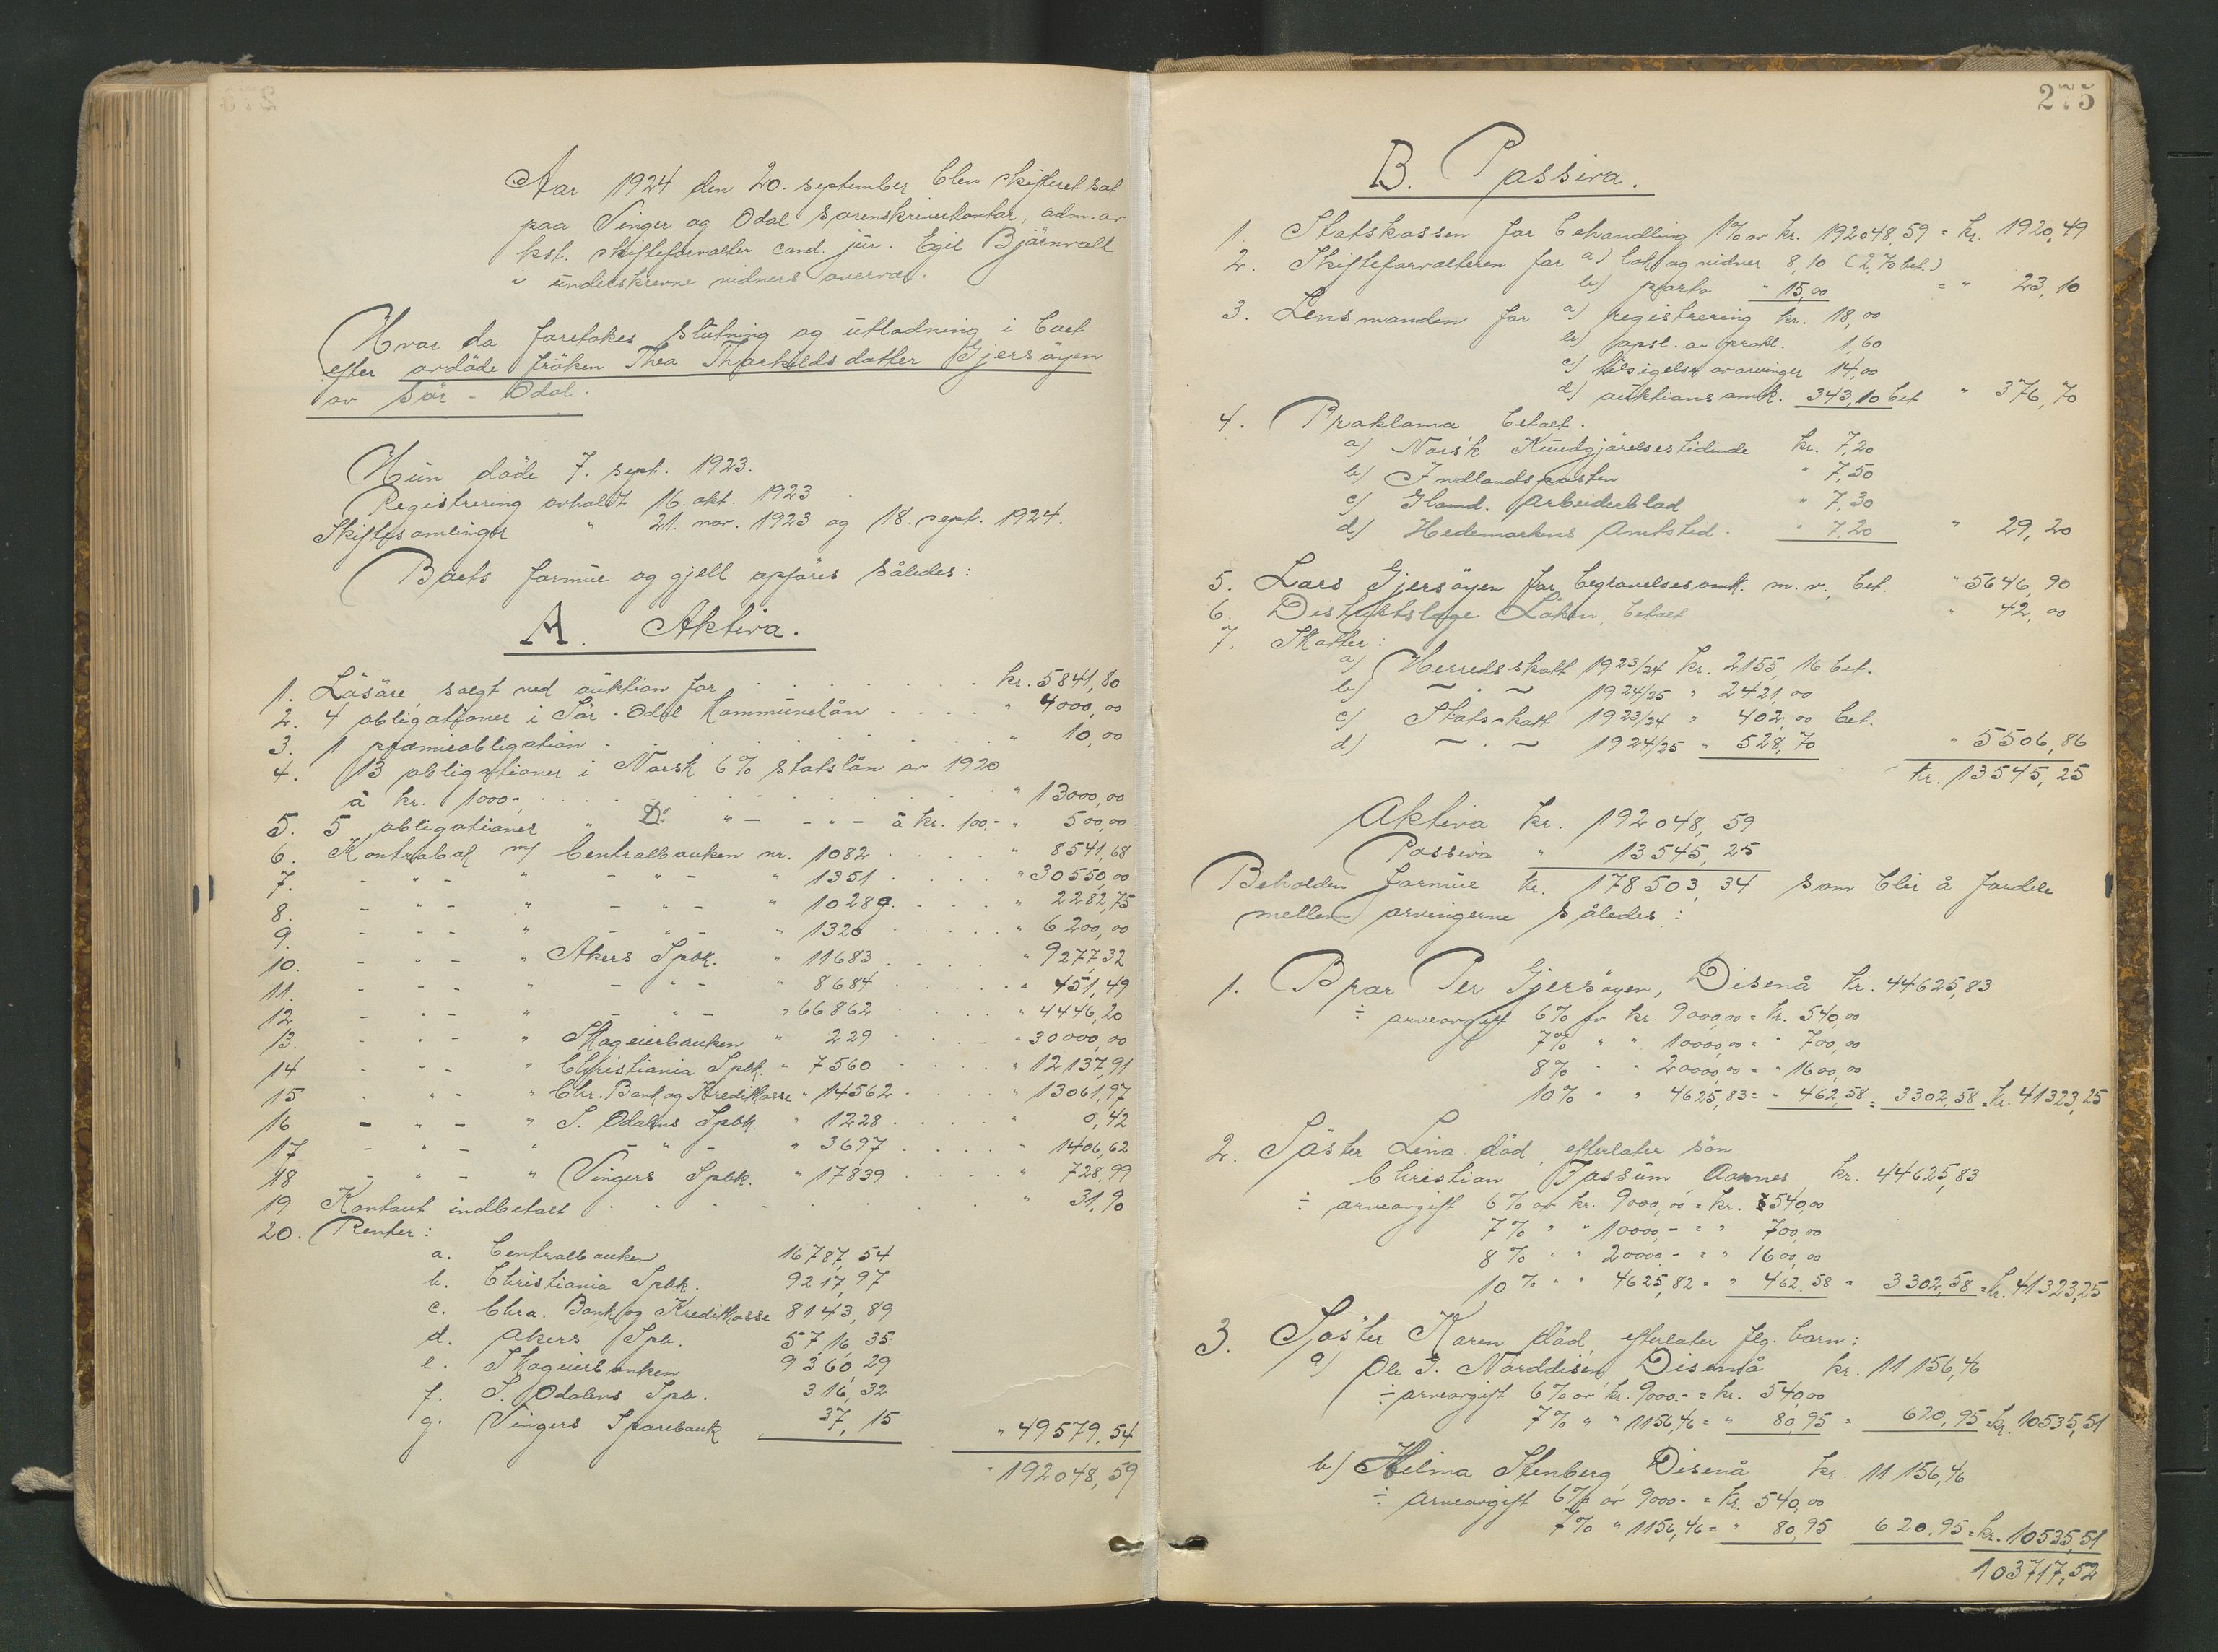 Aar 1924 den 20. september blev skifteret sat
paa Vinger og Odal sorenskriverkontor, adm. av
kst. skifteforvalter cand. jur. Egil Bjørnvall
i underskrevne vidners overvær.
Hvor da foretokes slutning og utlodning i boet
efter avdøde frøken Thea Thorkildsdatter Gjersøyen
av Sør-Odal.
Hun døde 7. sept. 1923.
Registrering avholdt 16. okt. 1923
Skiftesamlinger " 21. nov. 1923 og 18. sept. 1924.
Boets formue og gjeld opføres således:
A. Aktiva.
1. Løsøre solgt ved auktion for . . . . . . . kr. 5841,80
2. 4 obligationer i Sør-Odal Kommunelån . . . . " 4000,00
3. 1 præmieobligation . . . . . . . . . . " 10,00
4. 13 obligationer i Norsk 6% statslån av 1920
à kr. 1000- . . . . . . . . . . " 13000,00
5. 5 obligationer " Do " - - " - à kr. 100.- " 500,00
6. Kontrabok m/ Centralbanken nr. 1082 . . . . " 8541,68
7. - " - " - " - " 1351 . . . . " 30550,00
8. - " - " - " - " 10289 . . . . " 2282,75
9. - " - " - " - " 1320 . . . . " 6200,00
10. - " - " Akers Spbk. " 11683 . . . . " 9277,32
11. - " - " - " - " 8684 . . . . " 451,49
12 - " - " - " - " 66862 . . . . " 4446,20
13. - " - " Skogeierbanken " 229 . . . . " 30000,00
14 - " - " Christiania Spbk. " 7560 . . . . " 12137,91
15 - " - " Chr. Bank og Kreditkasse " 14562 . . . . " 13061,97
16 - " - " S. Odalens Spbk. " 1228 . . . . " 0,42
17 - " - " - " - " 3697 . . . . " 1406,62
18 - " - " Vingers Spbk. " 17839 . . . . " 728,99
19 Kontant indbetalt . . . . . . . . " 31,90
20. Renter:
a. Centralbanken 16787,54
b. Christiania Spbk. 9217,97
c. Chra. Bank og Kreditkasse 8143,89
d. Akers Spb. 5716,35
e. Skogeierbanken 9360,29
f. S. Odalens Spb. 316,32
g. Vingers Sparebank 37,15 " 49579,54
" 192048,59
275
B. Passiva.
1. Statskassen for behandling 1% av kr. 192048,59 = kr. 1920,49
2. Skifteforvalteren for a) lok og vidner 8,10 (2,70 bet.)
b) porto " 15,00 = " 23,10
3. Lensmanden for a) registrering kr. 18,00
b) opsl. av prokl. 1,60
c) tilsigelse av arvinger 14,00
d) auktionsomk. 343,10 bet " 376,70
4. Proklama betalt.
a) Norsk Kundgjørelsestidende kr. 7,20
b) Indlandsposten " 7,50
c) Glomd. Arbeiderblad " 7,30
d) Hedemarkens Amtstid. " 7,20 " 29,20
5. Lars Gjersøyen for begravelsesomk. m.v., bet. " 5646,90
6. Distriktslæge Løken, betalt " 42,00
7. Skatter:
a) Herredsskatt 1923/24 kr. 2155,16 bet.
b) - . - 1924/25 " 2421,00
c) Statsskatt 1923/24 " 402,00 bet.
d) - . - 1924/25 " 528,70 " 5506,86
kr. 13545,25
Aktiva kr. 192048,59
Passiva " 13545,25
Beholden formue kr. 178503,34 som blir å fordele
mellem arvingerne således:
1. Bror Per Gjersøyen, Disenå kr. 44625,83
÷ arveavgift 6% av kr. 9000,00 = kr. 540,00
7% " " 10000,00 = " 700,00
8% " " 20000,00 = " 1600,00
10% " " 4625,83 = " 462,58 = 3302,58 = kr. 41323,25
2. Søster Lina død, efterlater søn
Christian Fossum Aarnes kr. 44625,83
÷ arveavgift 6% av kr. 9000,00 = kr. 540,00
7% " " 10000- = " 700,00
8% " " 20000- = " 1600,00
10% " " 4625,82 = " 462,58 = 3302,58 = kr. 41323,25
3. Søster Karen død, efterlater flg. barn:
a) Ole T. Norddisen, Disenå kr. 11156,46
÷ arveavgift 6% av kr. 9000.- = kr. 540,00
7% " " 1156,46 = " 80,95 = 620,95 = kr. 10535,51
b) Hilma Stenberg, Disenå kr. 11156,46
÷ arveavgift 6% av 9000- = kr. 540,00
7% " 1156,46 = " 80,95 620.95 = kr. 10535,51
103717,52